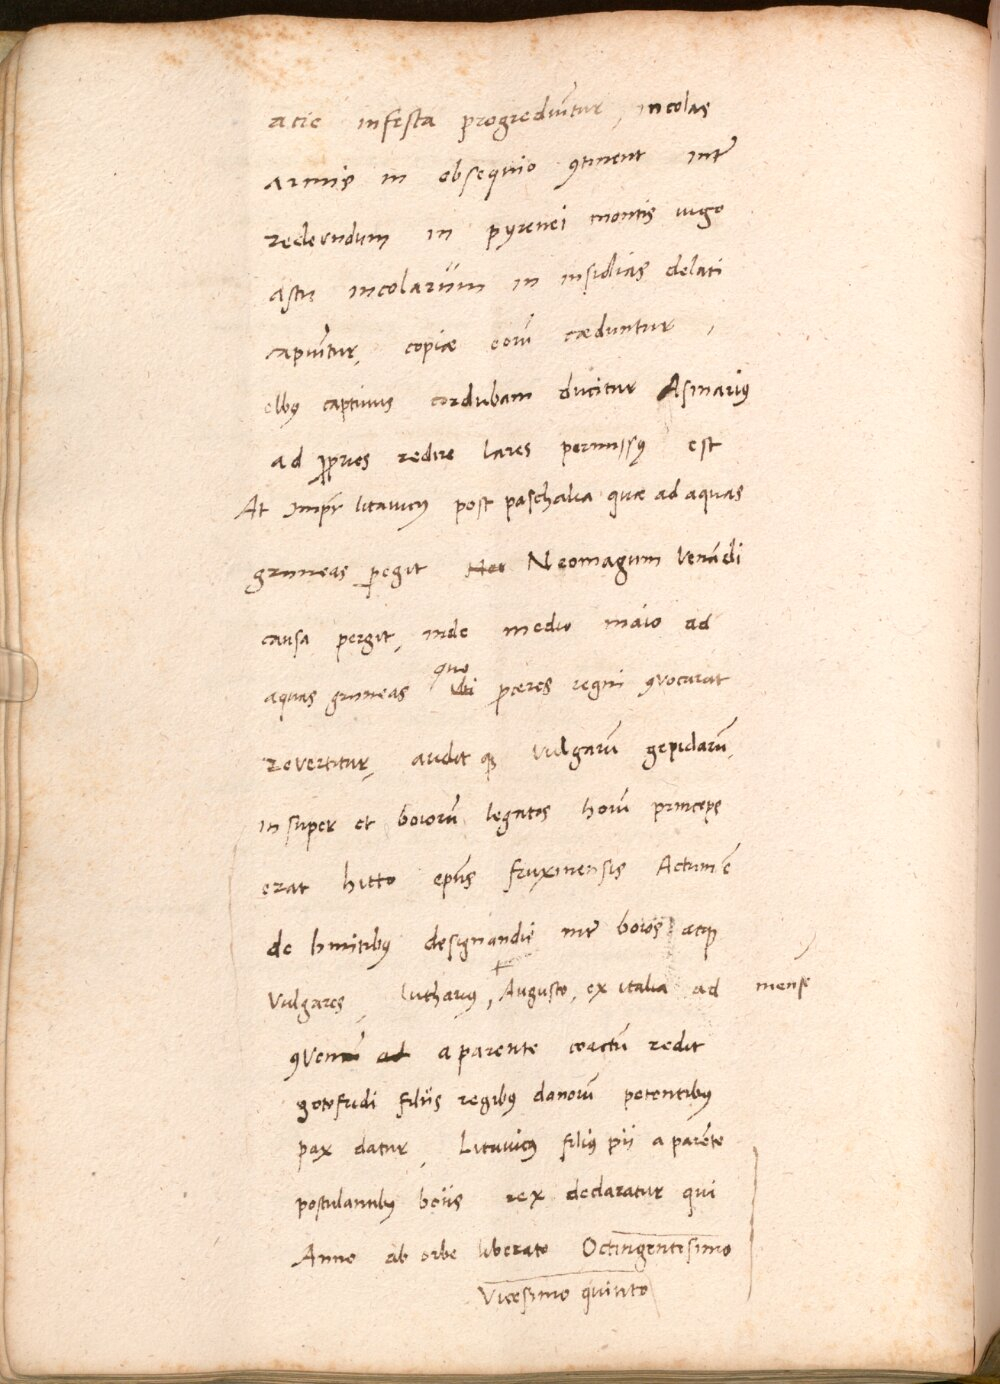 acie infesta progrediu͂tur, incolas
armis in obsequio ꝯtinent inte͂r
redeundum in pyrenei montis iugo
astu incolarum in insidias delati
capiu͂tur, copiæ eoru͂ cæduntur,
elbꝰ captiuus cordubam ducitur Asinariꝰ
ad ꝓprios redire lares permissꝰ est
At Imp͂r litauicꝰ post paschalia quæ ad aquas
gruneas ꝑegit Neomagum Vena͂di
causa pergit, inde medio maio ad
aquas gruneas quo ubi ꝓceres regni ꝯvocarat
revertitur, audit qꝫ Vulgaru͂ gepidaru͂,
insuper et boioru͂ legatos horu͂ princeps
erat hitto ep͂us fruxinensis Actum e͂
de limitibꝰ designandis int͂ boios atqꝫ
Vulgares, lutharius, Augusto, ex italia ad mense
ꝯventu͂ ad a parente coactu͂ redit
gotofridi filiis regibꝰ danoru͂ petentibꝰ
pax datur, Litauicꝰ filiꝰ pii a pare͂te
postulantibꝰ boiis rex declaratur qui
Anno ab orbe liberato Octingentisimo
Vicesimo quinto